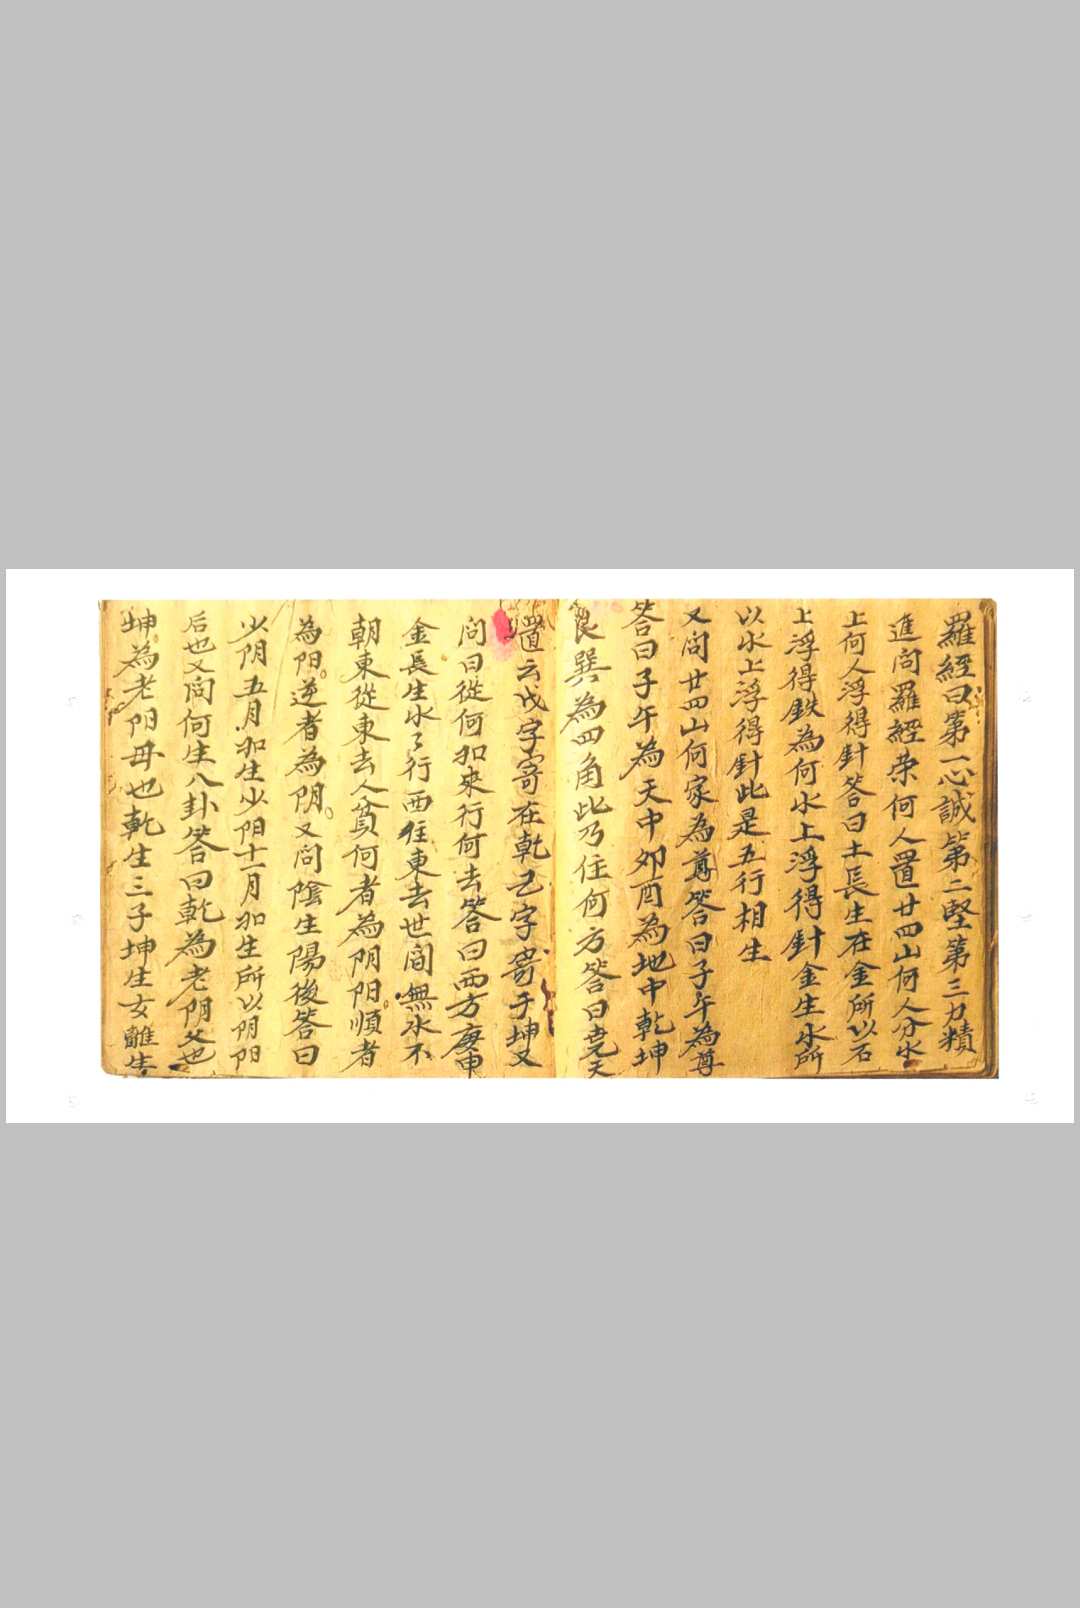 羅經曰第一心誠第二堅第三力積
進问羅經荣何人置廿四山何人分水
上何人浮得針答曰土長生在金所以石
上浮得鉄為何水上浮得針金生水所
以水上浮得針此是五行相生
又问廿四山何家為尊答曰子午為尊
答曰子午為天中夘酉為地中乾坤
艮巽為四角此乃住何方答曰尭天
置云戊字寄在乾己字寄于坤又
问曰從何如來行何去答曰西方庚申
金長生水々行西往東去世间無水不
朝東從東去人貧何者為阴阳。順者
為阳。逆者為阴。又问陰生陽後答曰
少阴五月如生少阳十一月如生所以阴阳
后也又问何生八卦答曰乾為老阴父也
坤為老阳毋也乾生三子坤生女離生